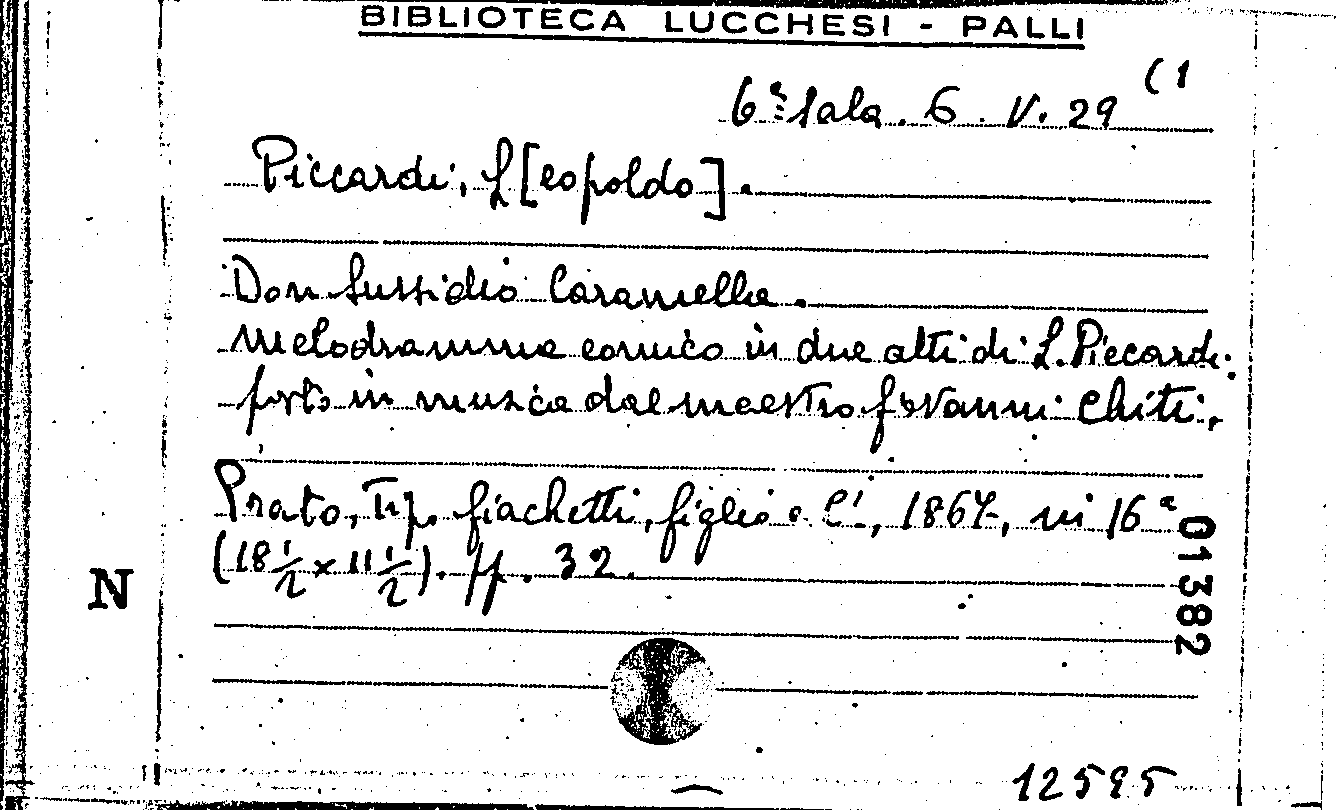 BIBLIOTECA LUCCHESI - PALLI
6ª Sala. 6. V. 29 (1
Piccardi, L[eopoldo].
Don Sussidio Caramella.
melodramma comico in due atti di L. Piccardi.
posto in musica dal maestro Giovanni Chiti.
Prato, Tip. Giachetti, figlio e C¹, 1867, in 16ª
(18½ x 11½). pp. 32.
N
01382
12595